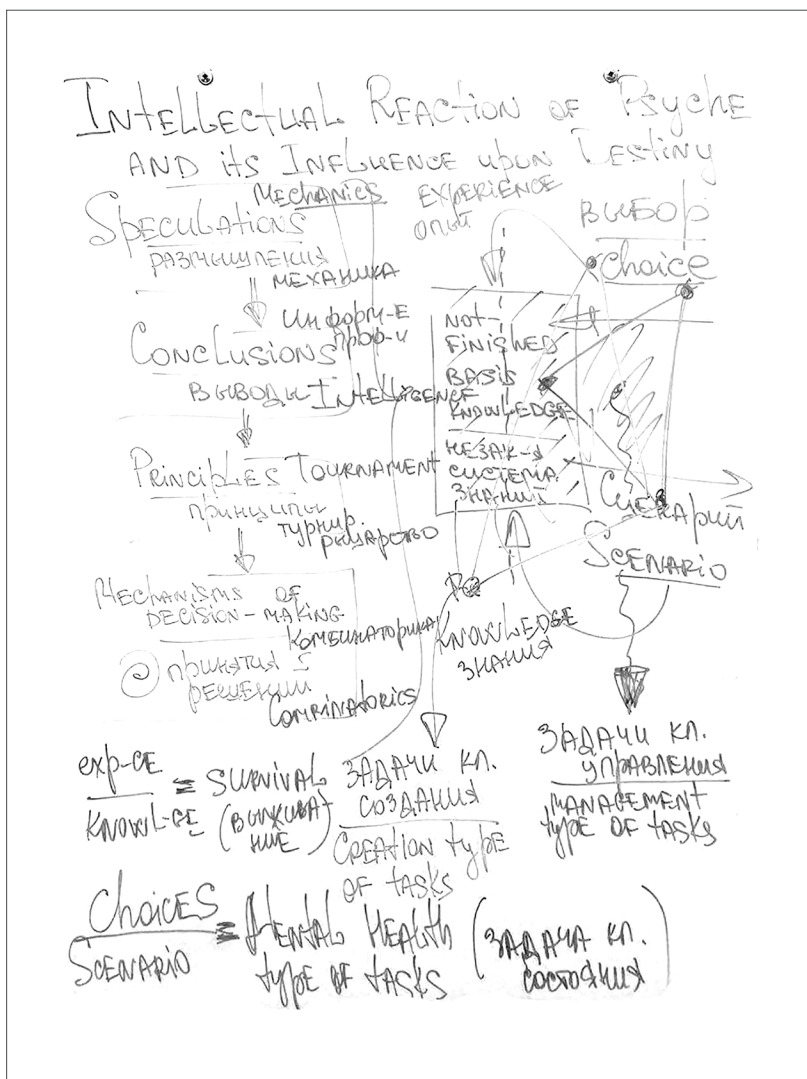 INTELLECTUAL REACTION OF PSYCHE
AND ITS INFLUENCE UPON DESTINY
MECHANICS
EXPERIENCE
ОПЫТ
SPECULATIONS
РАЗМЫШЛЕНИЯ
МЕХАНИКА
ВЫБОР
CHOICE
ИНФОРМ-Е
CONCLUSIONS
ВЫВОДЫ
INTELLIGENCE
NOT-
FINISHED
BASIS
KNOWLEDGE
НЕЗАК-Я
СИСТЕМА
ЗНАНИЙ
PRINCIPLES
ПРИНЦИПЫ
TOURNAMENT
ТУРНИР.
РЫЦАРСТВО
СЦЕНАРИЙ
SCENARIO
MECHANISMS OF
DECISION-MAKING
КОМБИНАТОРИКА
KNOWLEDGE
ЗНАНИЯ
ПРИНЯТИЯ
РЕШЕНИЙ
COMBINATORICS
EXP-CE
KNOWL-GE
= SURVIVAL
(ВЫЖИВА-
НИЕ)
ЗАДАЧИ КЛ.
СОЗДАНИЯ
CREATION TYPE
OF TASKS
ЗАДАЧИ КЛ.
УПРАВЛЕНИЯ
MANAGEMENT
TYPE OF TASKS
CHOICES
SCENARIO
= MENTAL HEALTH
TYPE OF TASKS
(ЗАДАЧА КЛ.
СОСТОЯНИЯ)